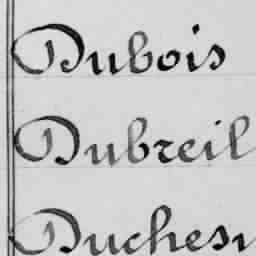 Dubois
Dubreil
Duchesn